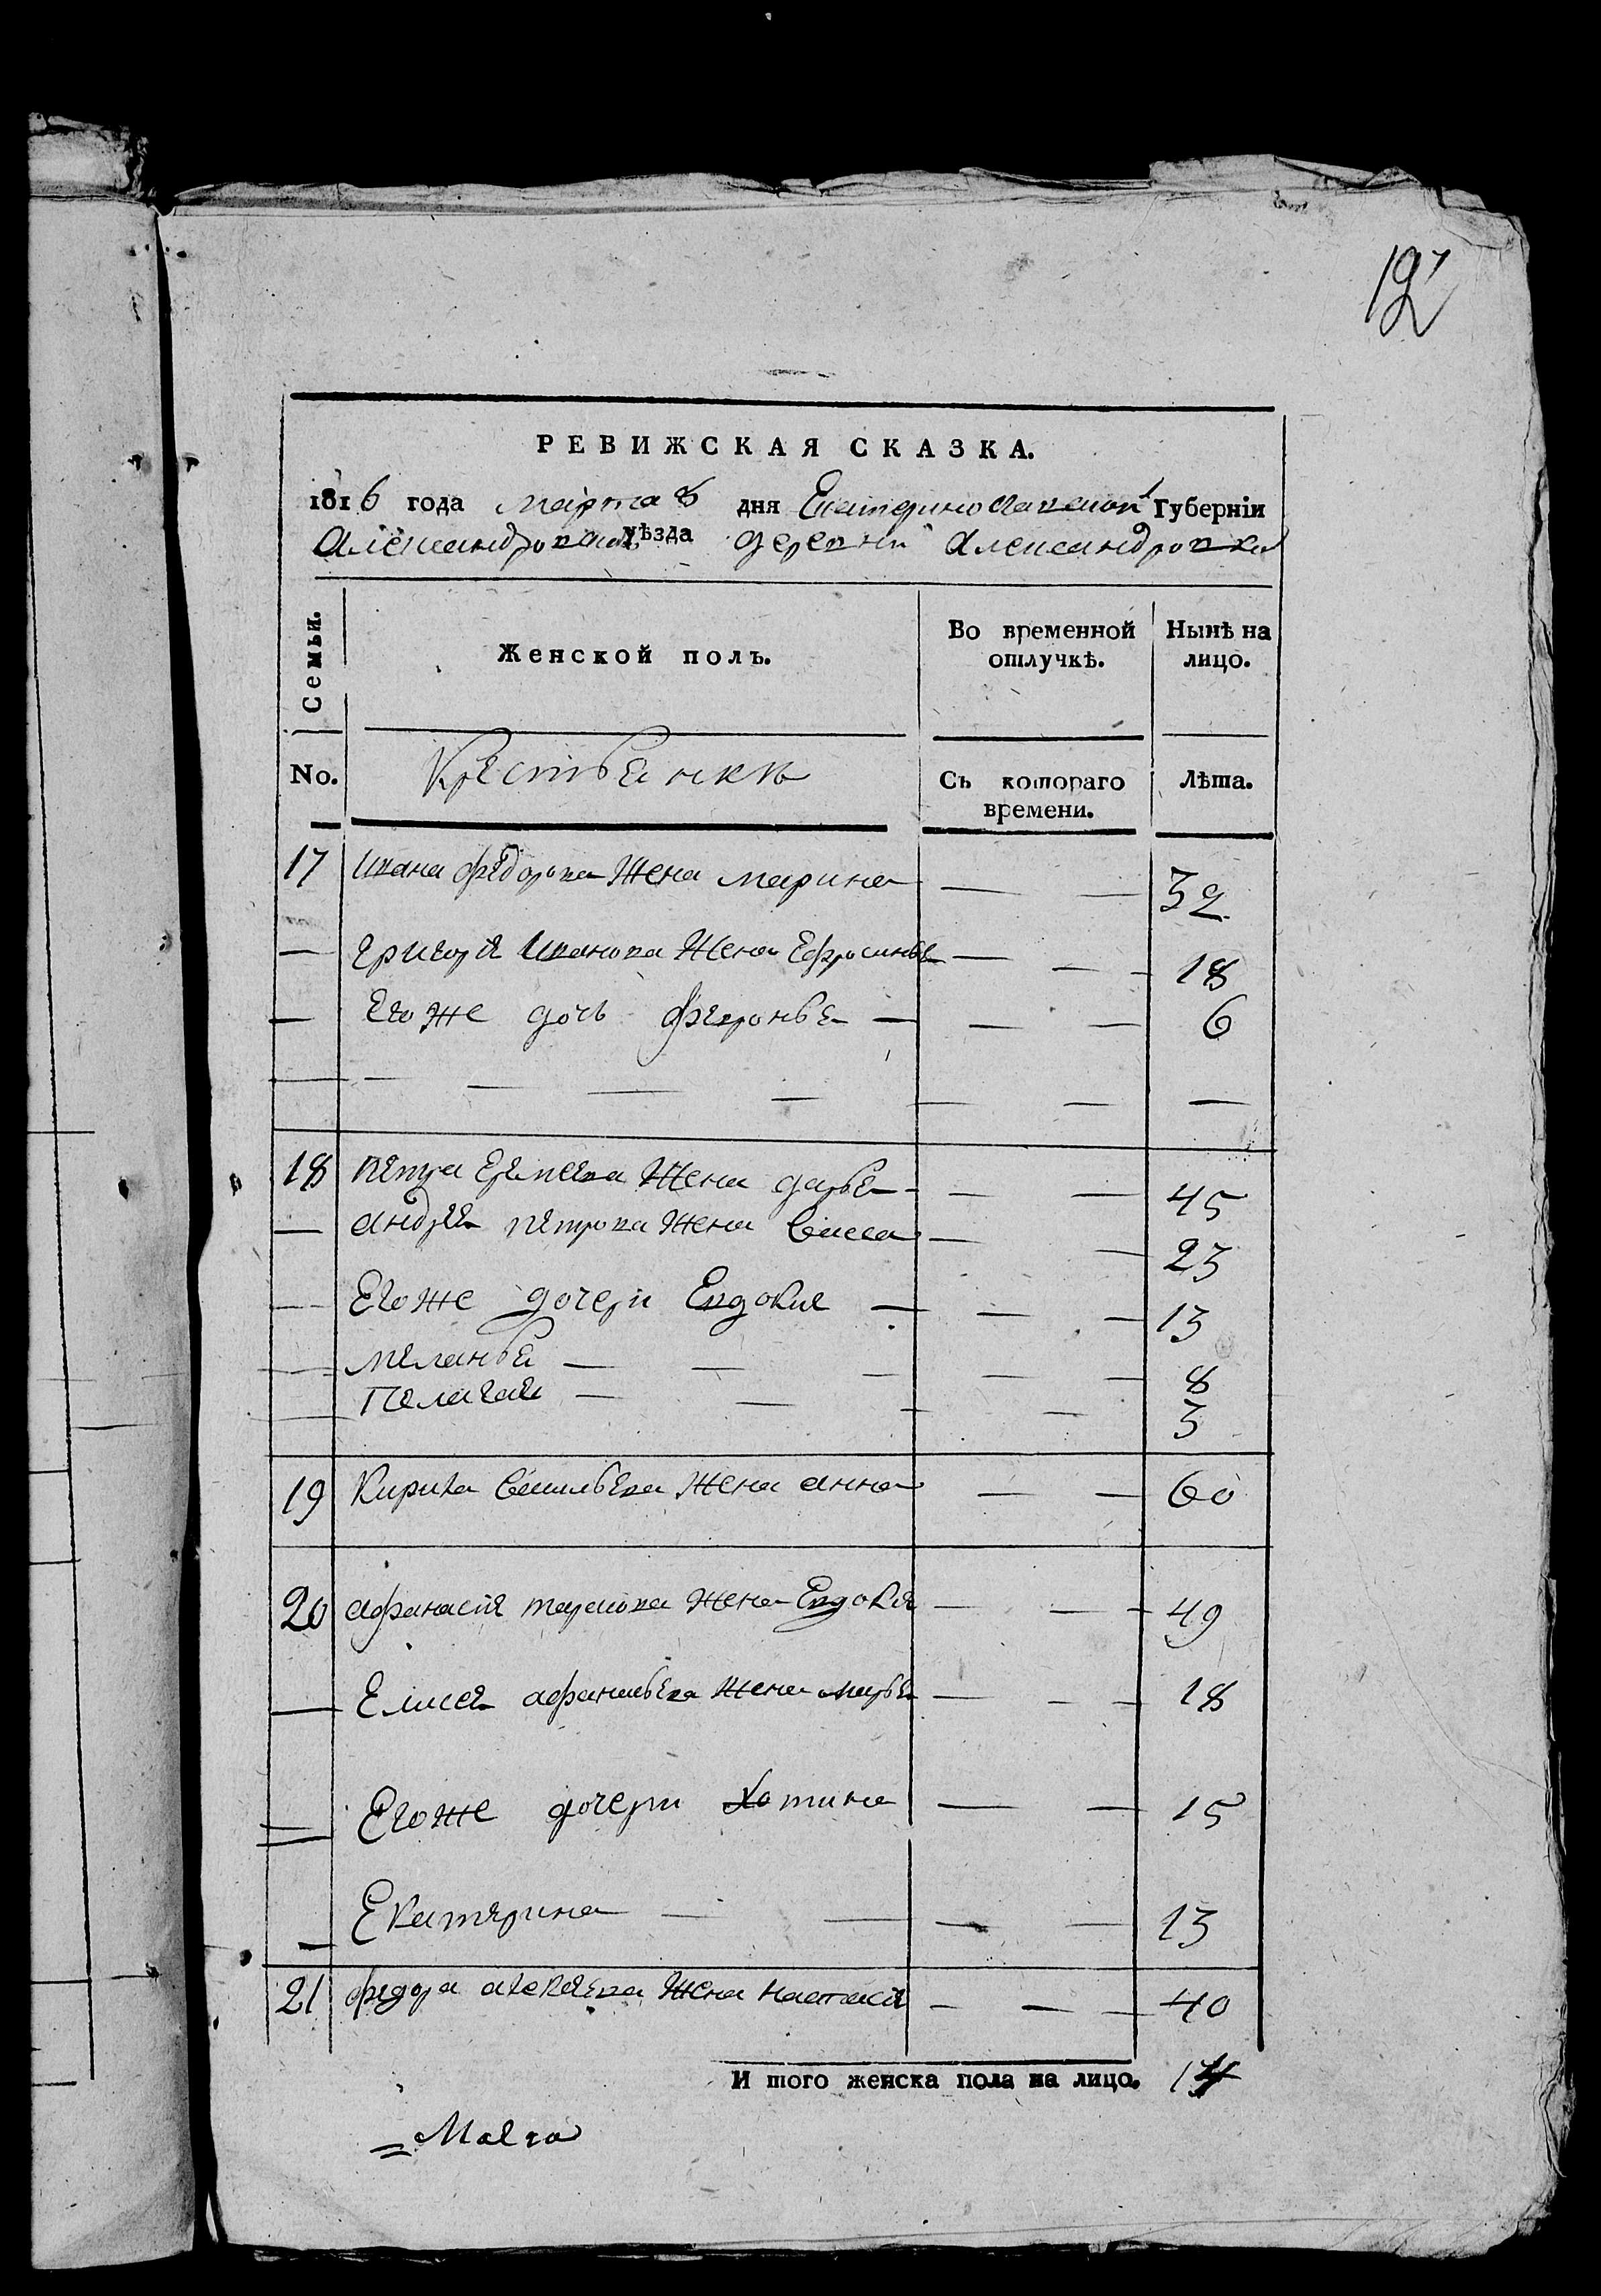 РЕВИЖСКАЯ СКАЗКА.
1816 года марта 8 дня Екатеринославской Губерніи
Александровской уѣзда деревни Александровки
Семьи. Женской полъ. Во временной отлучкѣ. Нынѣ на лицо.
No. Крестьянкъ Съ котораго времени. Лѣта.
17 Ивана федорова Жена марина — — 32
— григорія Иванова Жена Ефросинья — — 18
— Его же дочь февронья — — — 6
— — — — — — — —
18 петра Еремеева Жена дарья — — 45
— андрея петрова Жена Васса — — 23
— Его же дочери Евдокия — — — 13
— меланья — — — — — 8
— Пелагая — — — — — 3
19 Кирила Васильева Жена анна — — 60
20 афанасия тарасова Жена Евдокия — — 49
— Елисея афанасьева Жена марья — — 18
Его же дочери хотина — — 15
— Екатерина — — — — 13
21 федора алексеева Жена настасія — — 40
И того женска пола на лицо. 14